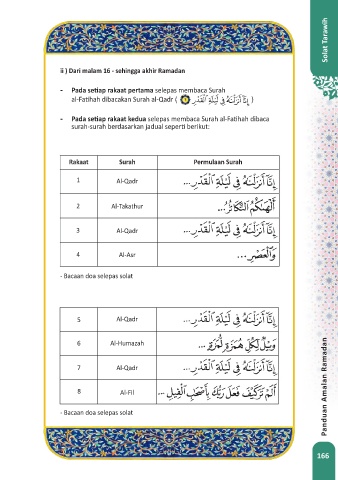 Solat Tarawih
ii ) Dari malam 16 - sehingga akhir Ramadan
- Pada setiap rakaat pertama selepas membaca Surah
al-Fatihah dibacakan Surah al-Qadr ( إِنَّآ أَنزَلْنَٰهُ فِى لَيْلَةِ ٱلْقَدْرِ )
- Pada setiap rakaat kedua selepas membaca Surah al-Fatihah dibaca
surah-surah berdasarkan jadual seperti berikut:
Rakaat Surah Permulaan Surah
1 Al-Qadr إِنَّآ أَنزَلْنَٰهُ فِى لَيْلَةِ ٱلْقَدْرِ...
2 At-Takathur أَلْهَىٰكُمُ ٱلتَّكَاثُرُ...
3 Al-Qadr إِنَّآ أَنزَلْنَٰهُ فِى لَيْلَةِ ٱلْقَدْرِ...
4 Al-Asr وَٱلْعَصْرِ...
- Bacaan doa selepas solat
5 Al-Qadr إِنَّآ أَنزَلْنَٰهُ فِى لَيْلَةِ ٱلْقَدْرِ...
6 Al-Humazah وَيْلٌ لِّكُلِّ هُمَزَةٍ لُّمَزَةٍ...
7 Al-Qadr إِنَّآ أَنزَلْنَٰهُ فِى لَيْلَةِ ٱلْقَدْرِ...
8 Al-Fil أَلَمْ تَرَ كَيْفَ فَعَلَ رَبُّكَ بِأَصْحَٰبِ ٱلْفِيلِ...
- Bacaan doa selepas solat
Panduan Amalan Ramadan
166